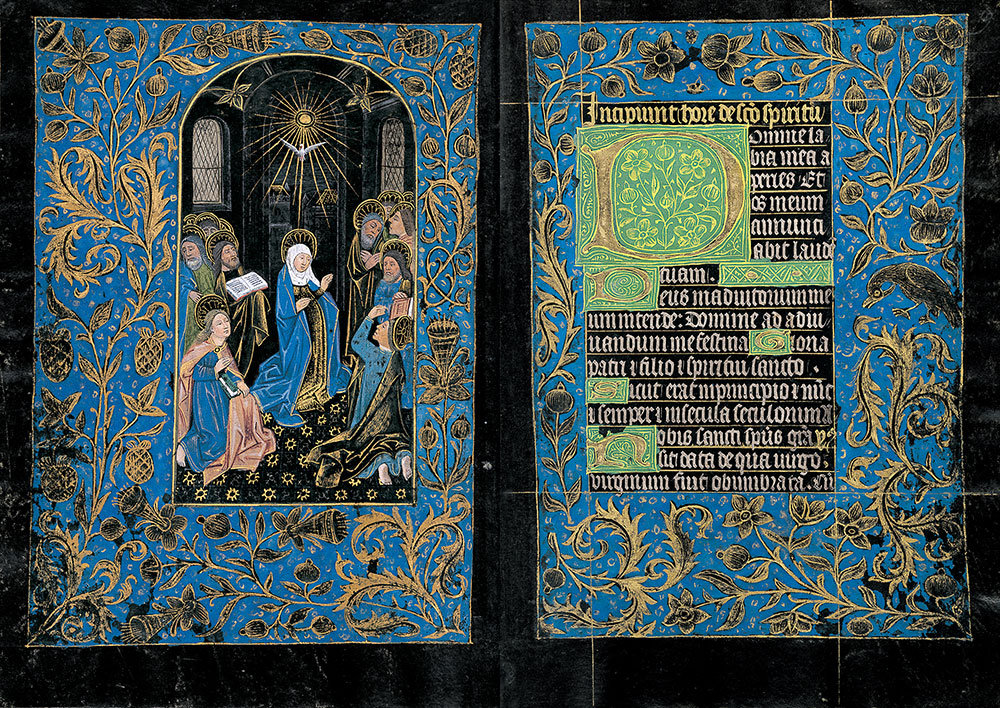 Incipiunt hore de sco spiritu
Domine la
bia mea a
peries. Et
os meum
annunci
abit laude
tuam.
Deus in adiutorium me
um intende. Domine ad adiu
uandum me festina Gloria
patri et filio et spiritui sancto.
Sicut erat in principio et nuc
et semper et in secula seculorum
Nobis sancti spus gra
sit data de qua uirgo
virginum fuit obumbrata. Cu